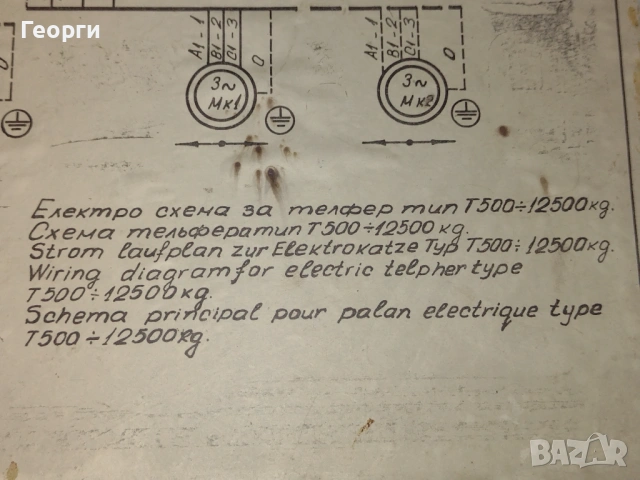 Георги
A1-1
B1-2
C1-3
O
A1-1
B1-2
C1-3
O
O
3~
МК1
3~
МК2
Електро схема за телфер тип Т500÷12500kg.
Схема тельфера тип Т500÷12500 kg.
Strom laufplan zur Elektrokatze Typ T500÷12500kg.
Wiring diagram for electric telpher type
T500÷12500kg.
Schema principal pour palan electrique type
T500÷12500kg.
BAZAR